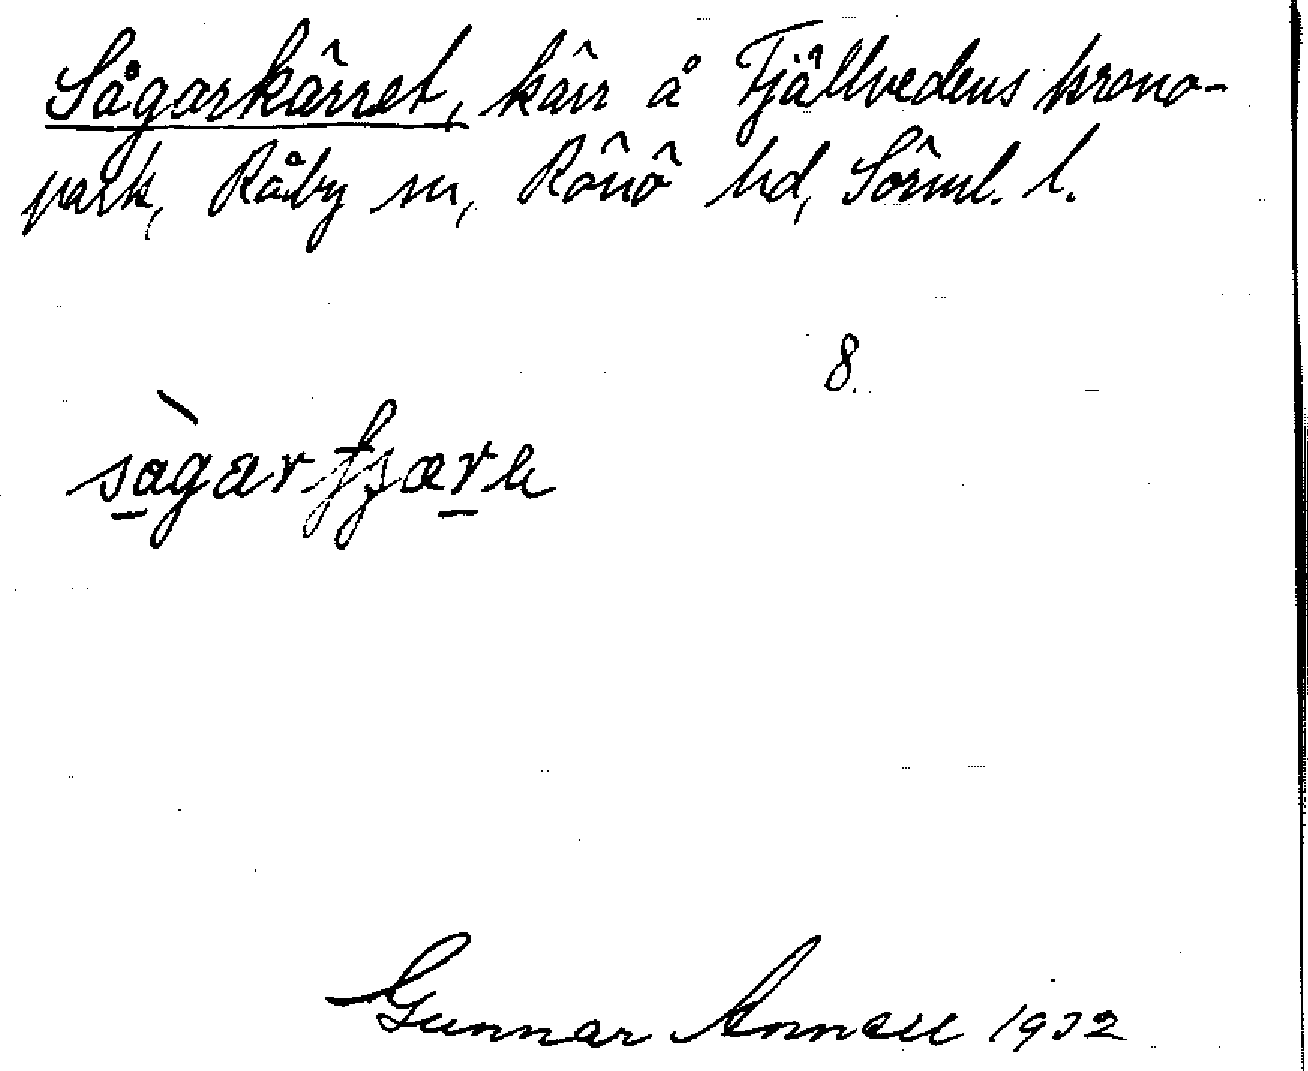 Sågarkärret, kärr å Fjällvedens krono-
park, Råby sn, Rönö hd, Sörml. l.
8.
Gunnar Annell 1932